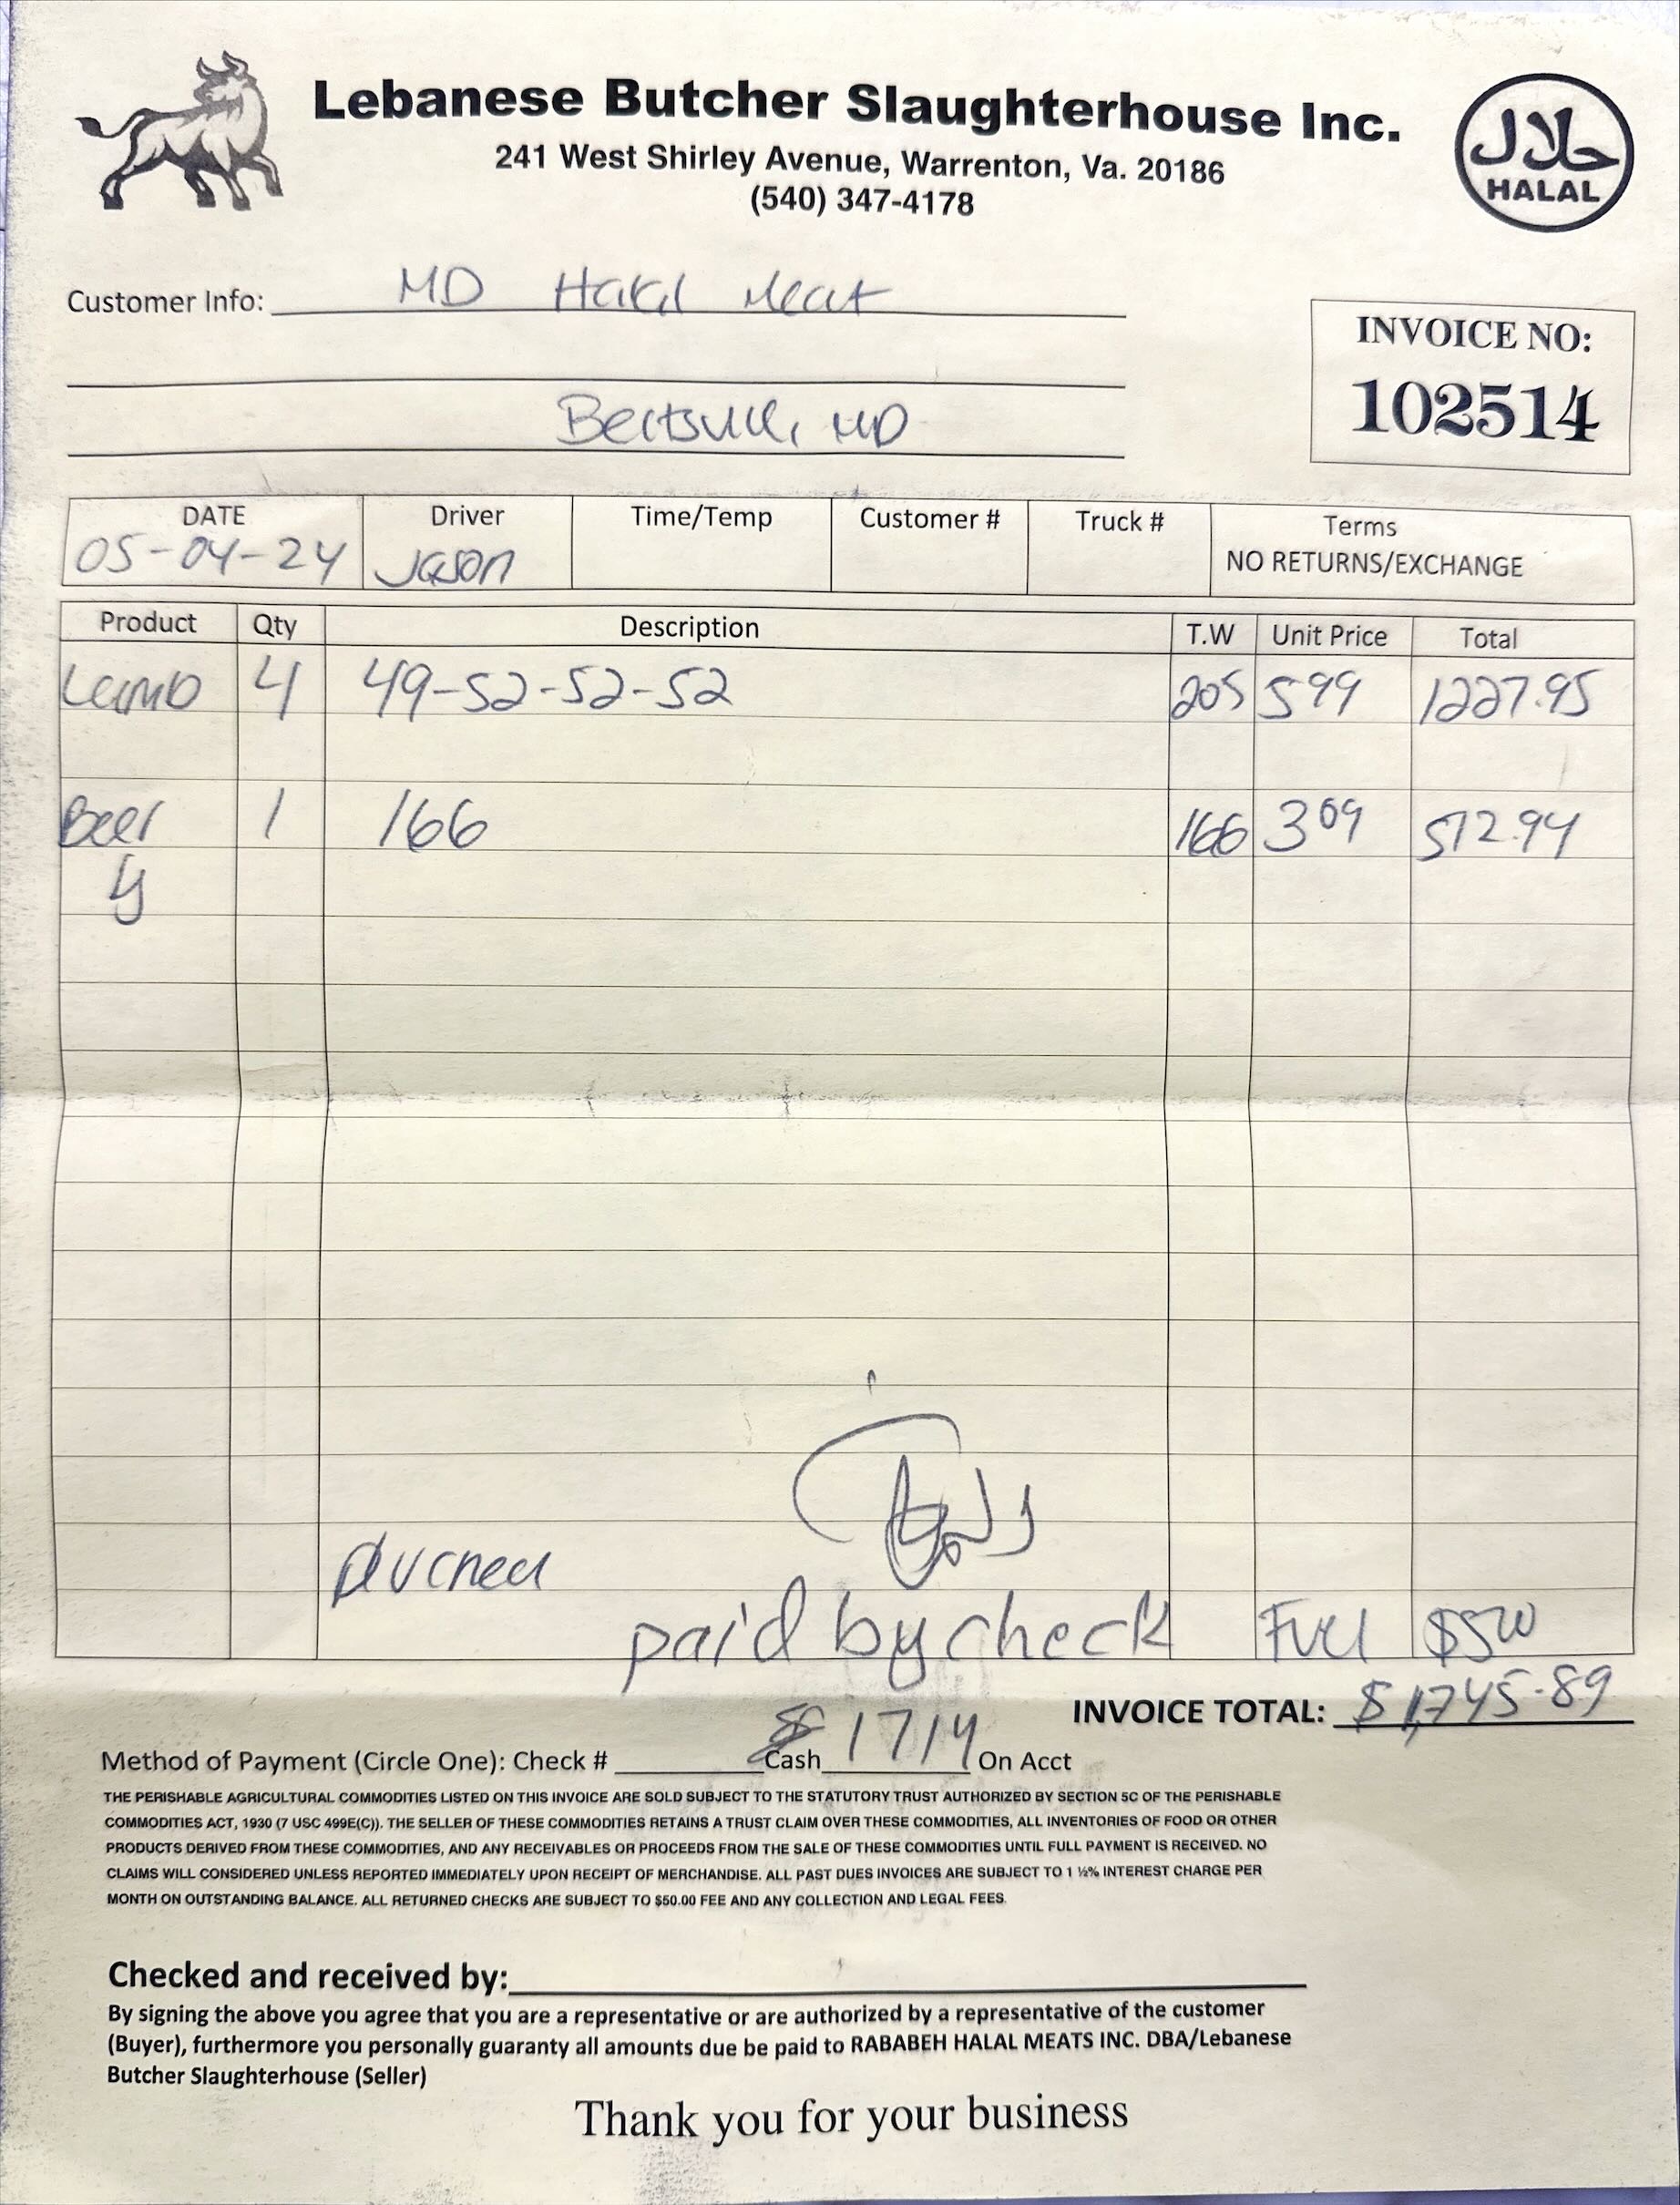 Lebanese Butcher Slaughterhouse Inc.
241 West Shirley Avenue, Warrenton, Va. 20186
(540) 347-4178
حلال
HALAL
Customer Info: MD Halal Meat
Beltsville, MD
INVOICE NO:
102514
DATE Driver Time/Temp Customer # Truck # Terms
05-04-24 Jason NO RETURNS/EXCHANGE
Product Qty Description T.W Unit Price Total
Lamb 4 49-52-52-52 205 5.99 1227.95
Beef 1 166 166 3.09 512.94
paid by check Fuel $5.00
INVOICE TOTAL: $1,745.89
Method of Payment (Circle One): Check # Cash 1714 On Acct
THE PERISHABLE AGRICULTURAL COMMODITIES LISTED ON THIS INVOICE ARE SOLD SUBJECT TO THE STATUTORY TRUST AUTHORIZED BY SECTION 5C OF THE PERISHABLE
COMMODITIES ACT, 1930 (7 USC 499E(C)). THE SELLER OF THESE COMMODITIES RETAINS A TRUST CLAIM OVER THESE COMMODITIES, ALL INVENTORIES OF FOOD OR OTHER
PRODUCTS DERIVED FROM THESE COMMODITIES, AND ANY RECEIVABLES OR PROCEEDS FROM THE SALE OF THESE COMMODITIES UNTIL FULL PAYMENT IS RECEIVED. NO
CLAIMS WILL CONSIDERED UNLESS REPORTED IMMEDIATELY UPON RECEIPT OF MERCHANDISE. ALL PAST DUES INVOICES ARE SUBJECT TO 1 ½% INTEREST CHARGE PER
MONTH ON OUTSTANDING BALANCE. ALL RETURNED CHECKS ARE SUBJECT TO $50.00 FEE AND ANY COLLECTION AND LEGAL FEES.
Checked and received by:
By signing the above you agree that you are a representative or are authorized by a representative of the customer
(Buyer), furthermore you personally guaranty all amounts due be paid to RABABEH HALAL MEATS INC. DBA/Lebanese
Butcher Slaughterhouse (Seller)
Thank you for your business